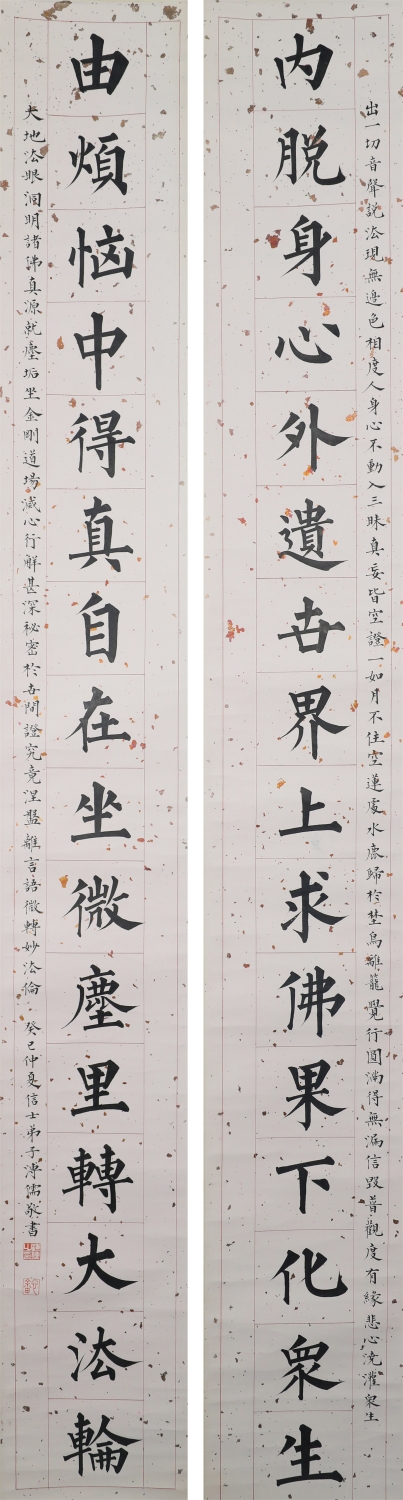 出一切音聲說法現無邊色相度人身心不動入三昧真妄皆空證一如月不住空蓮處水鹿歸於埜鳥離籠覺行圓滿得無漏信毀普觀度有緣悲心澆灌眾生
内脱身心外遺世界上求佛果下化眾生
由煩惱中得真自在坐微塵里轉大法輪
大地法眼洞明諸佛真源就塵垢坐金剛道場滅心行解甚深祕密於世間證究竟涅槃離言語微轉妙法倫
癸巳仲夏信士弟子溥儒敬書